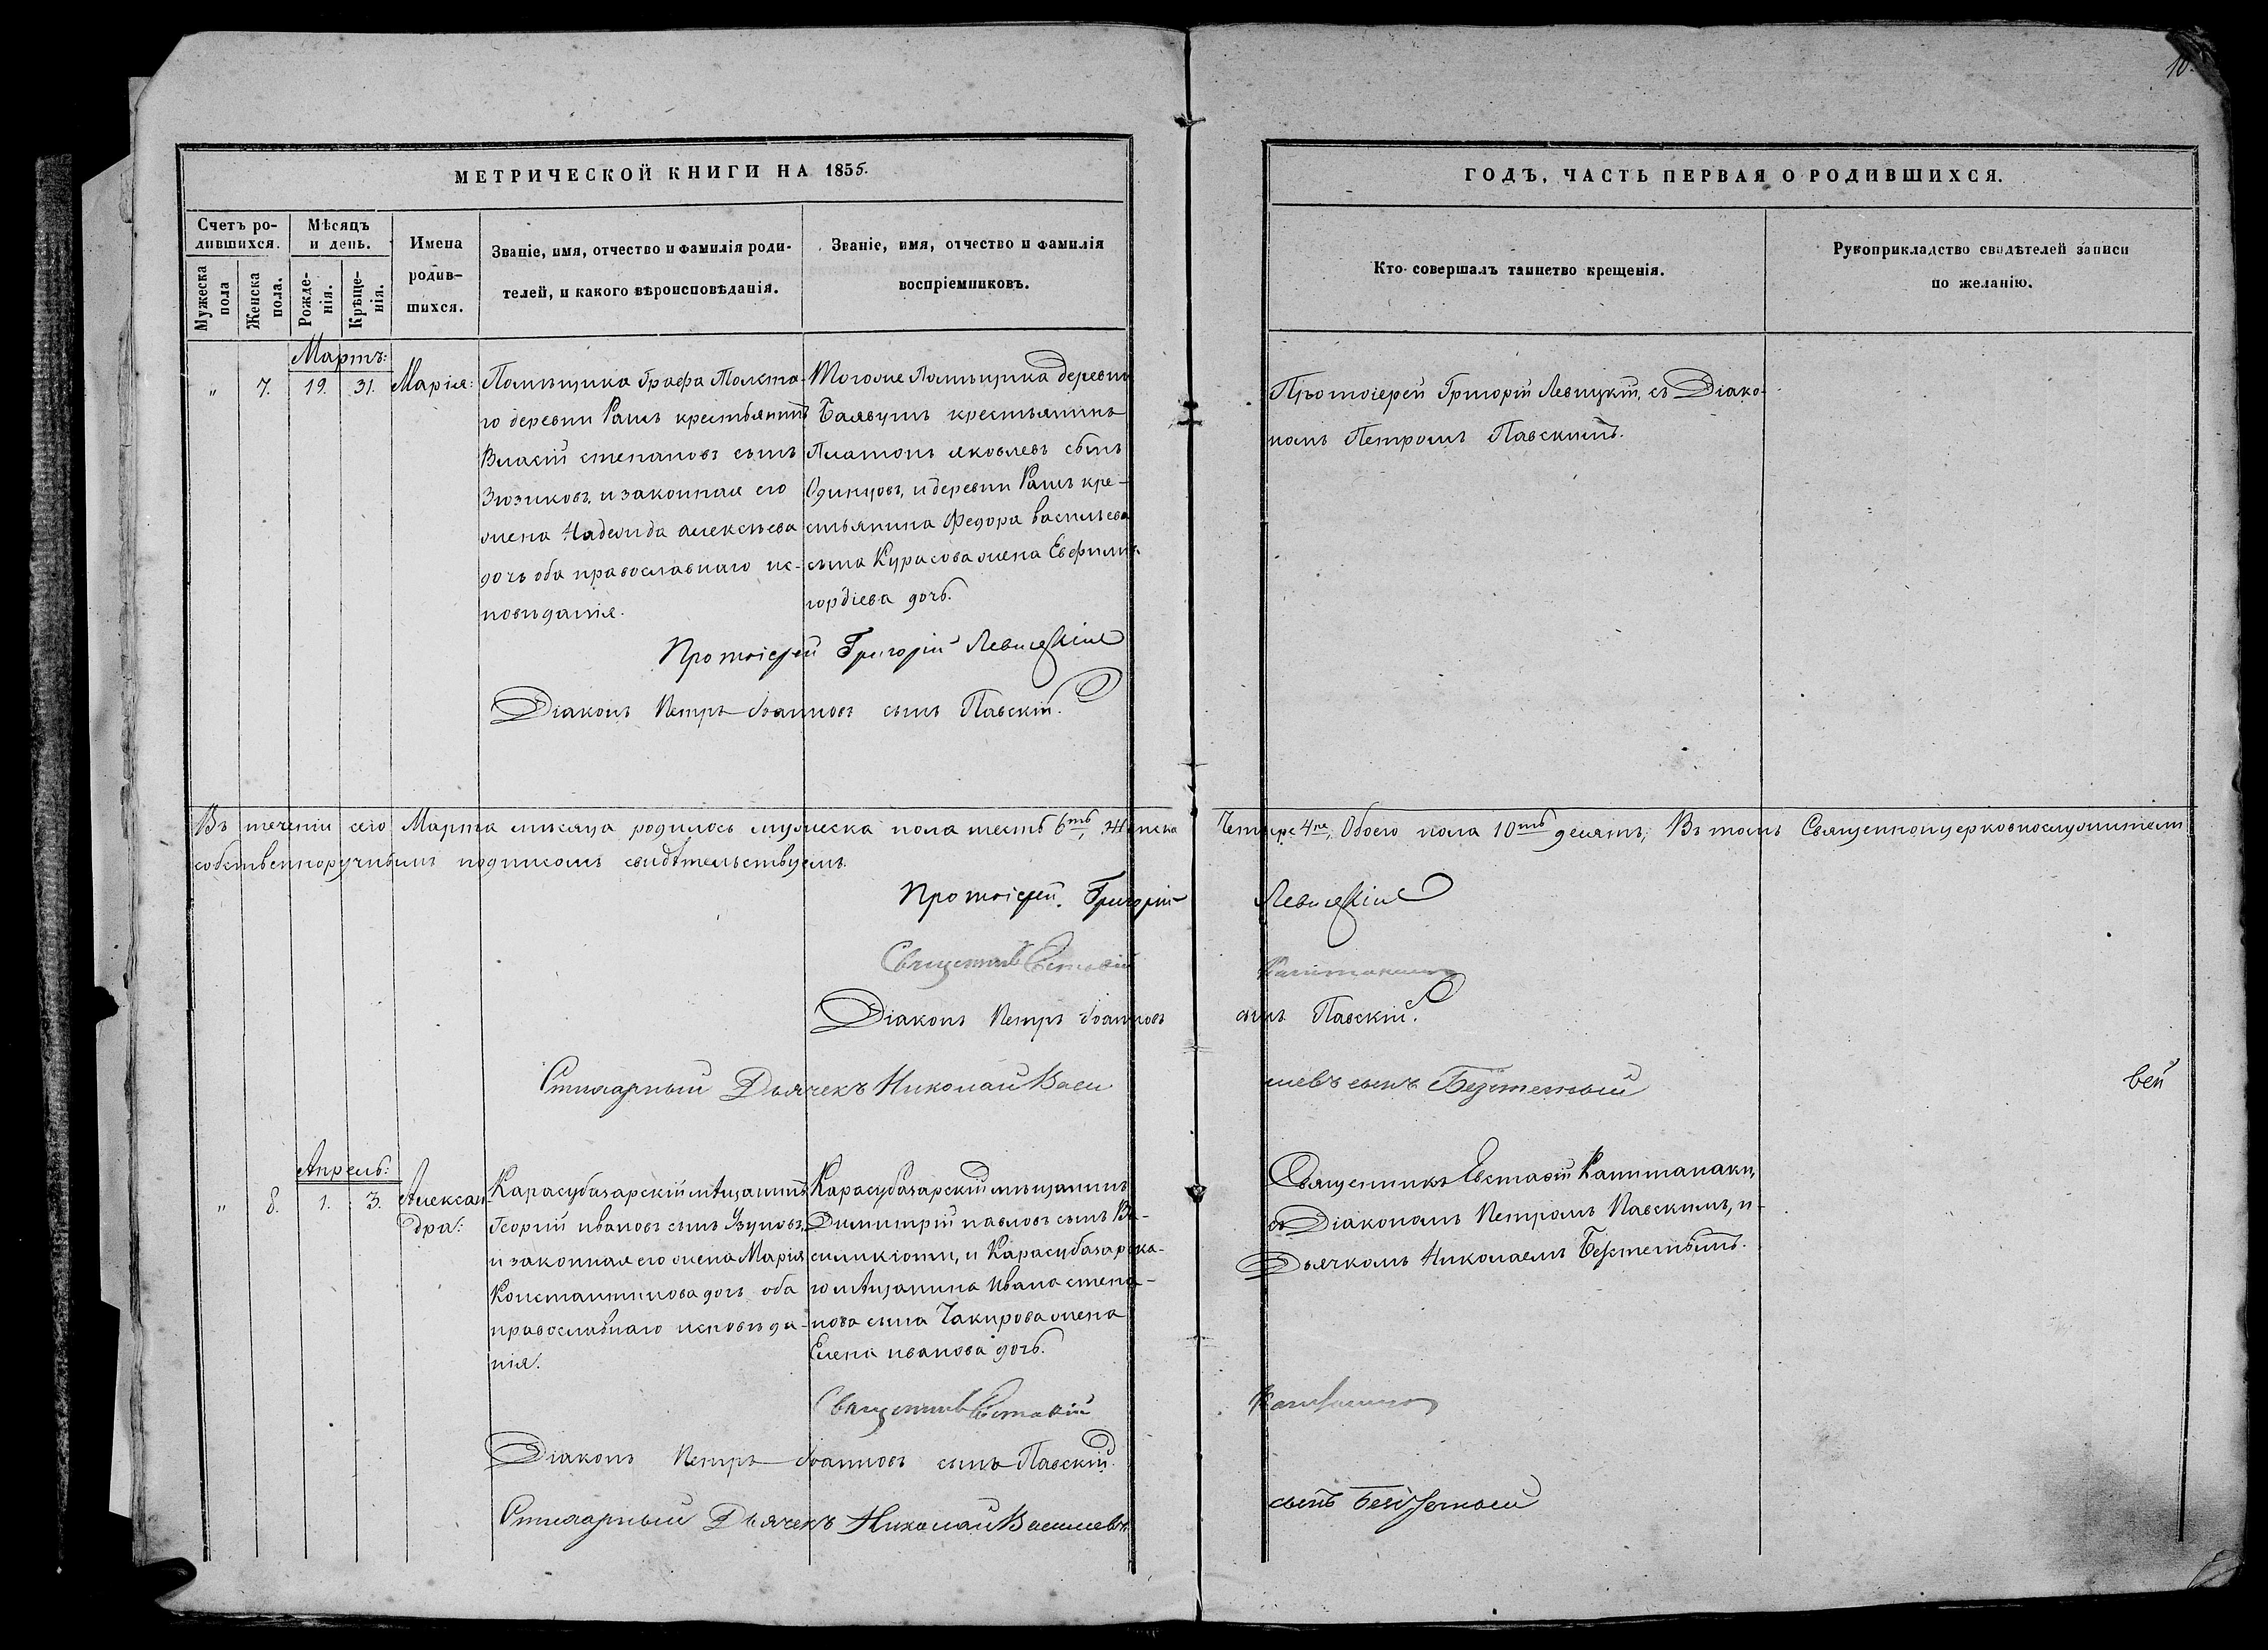 10.
МЕТРИЧЕСКОЙ КНИГИ НА 1855.
ГОДЪ, ЧАСТЬ ПЕРВАЯ О РОДИВШИХСЯ.
Счетъ ро-
дившихся.
Мужеска
пола
Женска
пола.
Мѣсяцъ
и день.
Рожде-
нія.
Крѣще-
нія.
Имена
родив-
шихся.
Званіе, имя, отчество и фамилія роди-
телей, и какого вѣроисповѣданія.
Званіе, имя, отчество и фамилія
воспріемниковъ.
Кто совершалъ таинство крещенія.
Рукоприкладство свидѣтелей записи
по желанію.
Мартъ:
„ 7. 19. 31. Марія:
Помѣщика Графа Толста-
го деревни Рашъ крестьянинъ
Власій степановъ сынъ
Зюзиковъ, и законная его
жена Надежда алексѣева
дочь оба православнаго ис-
повѣданія.
Тогоже Помѣщика деревни
крестьянинъ
Платонъ яковлевъ сынъ
Одинцовъ, и деревни Рашъ кре-
стьянина Федора васильева
сына Курасова жена
гордіева дочь.
Протоіерей Григорій Левицкій, съ Діако-
номъ Петромъ Павскимъ.
Протоіерей Григорій Левицкій
Діаконъ Петръ Іоанновъ сынъ Павскій.
Въ теченіи сего Марта мѣсяца родилось мужеска пола шесть 6ть, Женска Четыре 4ре, Обоего пола 10ть десять, Въ томъ Священноцерковнослужители
собственноручнымъ подписомъ свидѣтельствуемъ.
Протоіерей Григорій Левицкій
Священникъ Евстафій
Діаконъ Петръ Іоанновъ сынъ Павскій.
Стихарный Дьячекъ Николай Васи лiевъ сынъ Безтемный
вей
Апрель:
„ 8. 1. 3. Алексан
дра:
Карасубазарскій мѣщанинъ
Георгій ивановъ сынъ Узуновъ,
и законная его жена Марія
Константинова дочь оба
православнаго исповѣда-
нія.
Карасубазарскій мѣщанинъ
Димитрій павловъ сынъ Ва-
и Карасубазарска-
го мѣщанина Ивана степа-
нова сына Чакирова жена
Елена иванова дочь.
Священникъ Евстафій Капитанаки,
съ Діакономъ Петромъ Павскимъ, и
Дьячкомъ Николаемъ
Священникъ Евстафій
Діаконъ Петръ Іоанновъ сынъ Павскій.
Стихарный Дьячекъ Николай Василiевъ сынъ